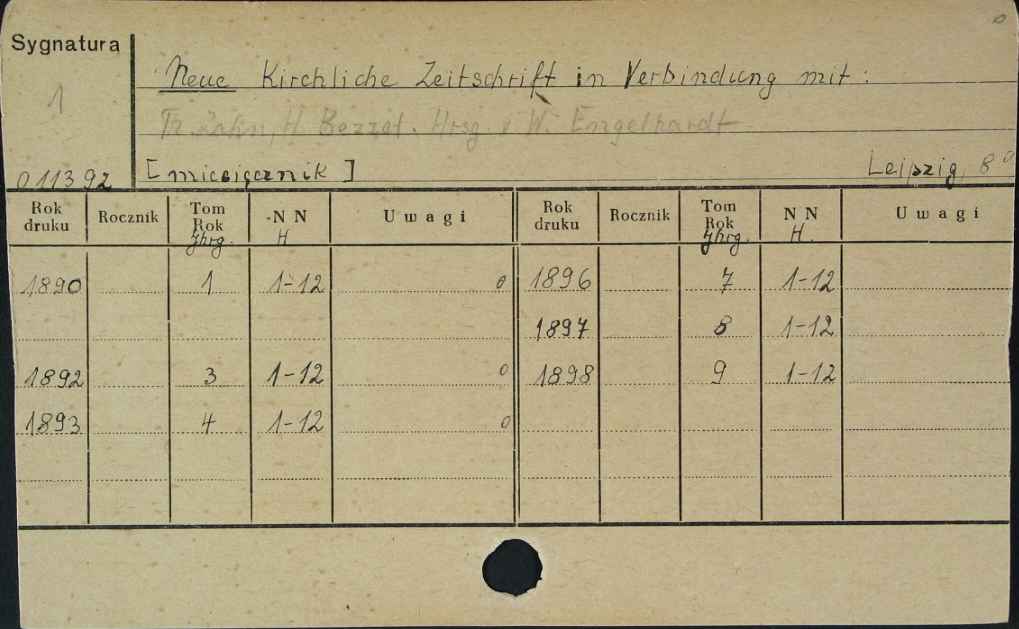 Sygnatura
1
011392
o
Neue Kirchliche Zeitschrift in Verbindung mit:
Th. Zahn, H. Bezzel. Hrsg. v W. Engelhardt
[miesięcznik] Leipzig, 8°
Rok druku Rocznik Tom Rok Jhrg. NN H Uwagi Rok druku Rocznik Tom Rok Jhrg. NN H. Uwagi
1890 1 1-12 o 1896 7 1-12
1897 8 1-12
1892 3 1-12 o 1898 9 1-12
1893 4 1-12 o